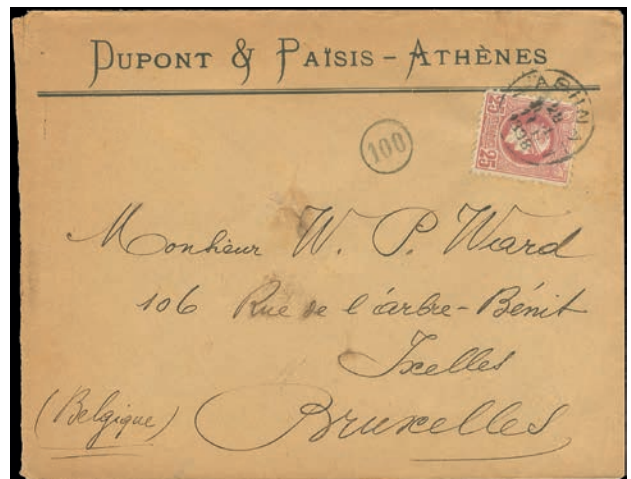 DUPONT & PAÏSIS – ATHÈNES
ΑΘΗΝΑΙ
25 25
100
Monsieur W. P. Ward
106 Rue de l'arbre-Bénit
Ixelles
(Belgique) Bruxelles